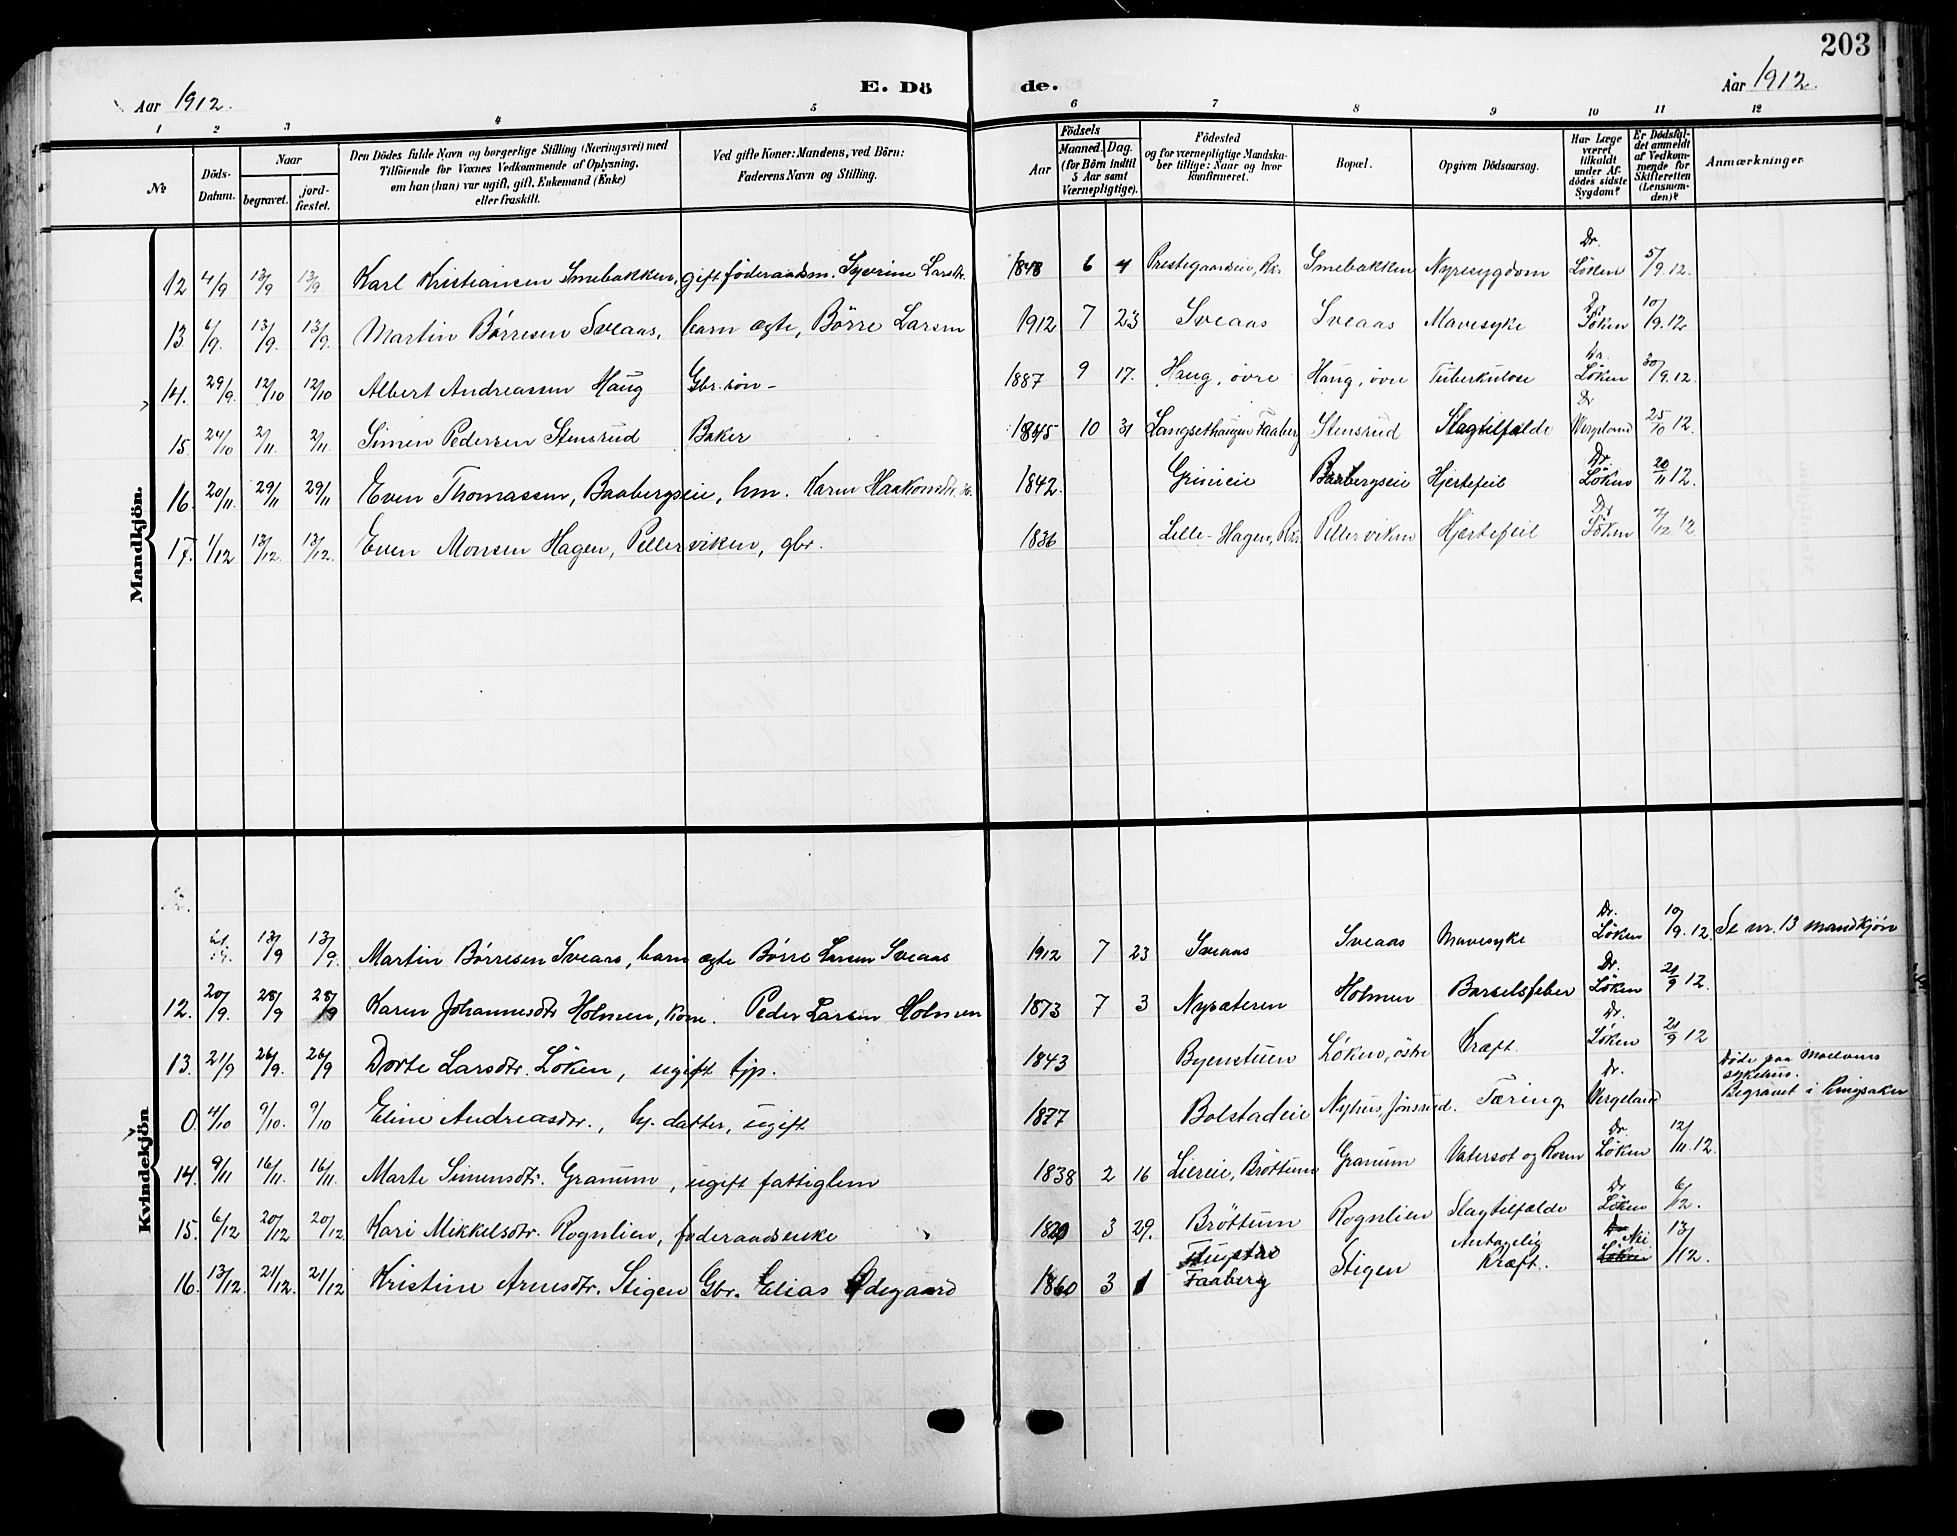 203
Aar 1912.
E. Dö
de.
Aar 1912.
1 2 3 4 5 6 7 8 9 10 11 12
No
Döds-Datum.
Naar
begravet.
jord-fæstet.
Den Dödes fulde Navn og borgerlige Stilling (Næringsvei) med
Tilföiende for Voxnes Vedkommende af Oplysning,
om han (hun) var ugift, gift, Enkemand (Enke)
eller fraskilt.
Ved gifte Koner: Mandens, ved Börn:
Faderens Navn og Stilling.
Födsels
Aar
Maaned. Dag.
(for Börn indtil
5 Aar samt
Værnepligtige).
Födested
og for værnepligtige Mandska-
ber tillige: Naar og hvor
konfirmeret.
Bopæl.
Opgiven Dödsaarsag.
Har Læge
været
tilkaldt
under Af-
dödes sidste
Sygdom?
Er Dödsfal-
det anmeldt
af Vedkom-
mende for
Skifteretten
(Lensman-
den)?
Anmærkninger
Mandkjön.
12 4/9 13/9 13/9 Karl Kristiansen Smebakken, gift föderaadsm. Syverine Larsdtr. 1848 6 4 Prestegaardseie, Smebakken Nyresygdom Dr. Løken 5/9.12.
13. 6/9. 13/9. 13/9. Martin Børresen Sveaas, barn ægte, Börre Larsen 1912 7 23 Sveaas Sveaas Mavesyke Dr Løken 10/9.12
14. 29/9. 12/10 12/10 Albert Andreassen Haug Gbr. søn - 1887 9 17. Haug, övre Haug, övre Tuberkulose Dr. Løken 30/9.12.
15. 24/10 2/11. 2/11. Simen Pedersen Stensrud Baker 1845 10 31 Langsethaugen Faaberg Stensrud Slagtilfælde Dr Vergeland 25/10 12.
16. 20/11. 29/11 29/11 Even Thomassen, Baabergseie, hm. Karen Haakonsdtr. 1842. Grinieie Baabergseie Hjertefeil Dr. Løken 20/11 12.
17. 1/12 13/12. 13/12. Even Monsen Hagen, Pellerviken, gbr. 1836 Lille-Hagen, Pellerviken Hjertefeil Dr Løken 12
Kvindekjön
13/9 13/9. Martin Börresen Sveaas, barn ægte Börre Larsen Sveaas 1912 7 23 Sveaas Sveaas Mavesyke Dr. Løken 10/9.12. Se nr. 13 mandkjön
12. 20/9. 28/9 28/9 Karen Johannesdtr Holmen, kone. Peder Larsen Holmen 1873 7 3 Nysæteren Holmen Barselsfeber Dr. Løken 21/9 12.
13. 21/9 26/9. 26/9 Dorte Larsdtr. Løken, ugift tjp. 1843 Byenstuen Løken, östre Kræft. Dr. Løken 21/9 12
0. 4/10 9/10. 9/10 Eline Andreasdtr., hj. datter, ugift 1877 Bolstadeie Nyhus, Jönsrud. Tæring Dr. Vergeland Döde paa Moelvens
sykehus.
Begravet i Ringsaker
14. 9/11 16/11. 16/11. Marte Simensdtr. Granum, ugift fattiglem 1838 2 16 Liereie, Bröttum Granum Vatersot og Rosen Dr. Løken 12/11.12.
15. 6/12 20/12 20/12. Kari Mikkelsdtr. Rognlien, föderaadsenke 1829 3 29. Bröttum Rognlien Slagtilfælde Dr Løken 6/12.
16. 13/12. 21/12. 21/12 Kristine Arnesdtr. Stigen Gbr. Elias Ödegaard 1860 3 1 Faaberg Stigen Antagelig Kræft. Dr Løken Nei 13/12.